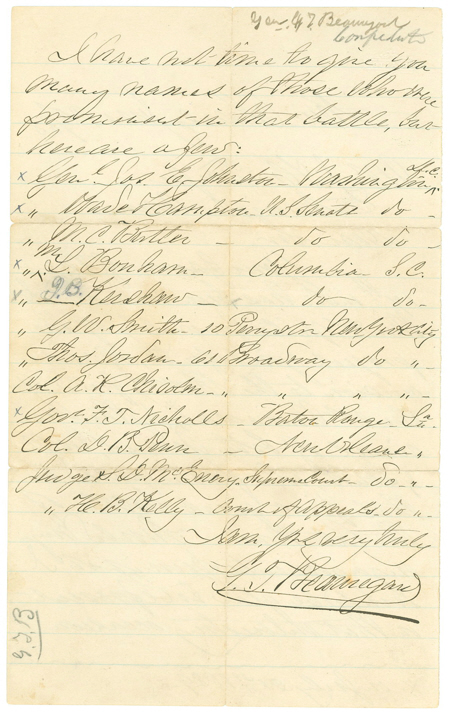 Gen. G.T. Beauregard
Confederate
I have not time to give you
many names of those who were
prominent in that battle, but
here are a few:
x Genl. Jos. E. Johnston - Washington D.C.
x " Wade Hampton U.S. Senate do -
" M.C. Butler - do do -
x " M. L. Bonham - Columbia S.C.
x " J.B. Kershaw - do do -
" G.W. Smith - 10 New York City
" Thos. Jordan - Broadway do " -
Col. A. R. Chisolm - " " " -
x Gov. F. T. Nicholls - Baton Rouge - La
Col. D. B. Penn - New Orleans "
Judge S. D. McEnery, Supreme Court - do - " -
" H. B. Kelly - Court of Appeals do " -
I am, Yrs very truly
G. T. Beauregard
G.T.B